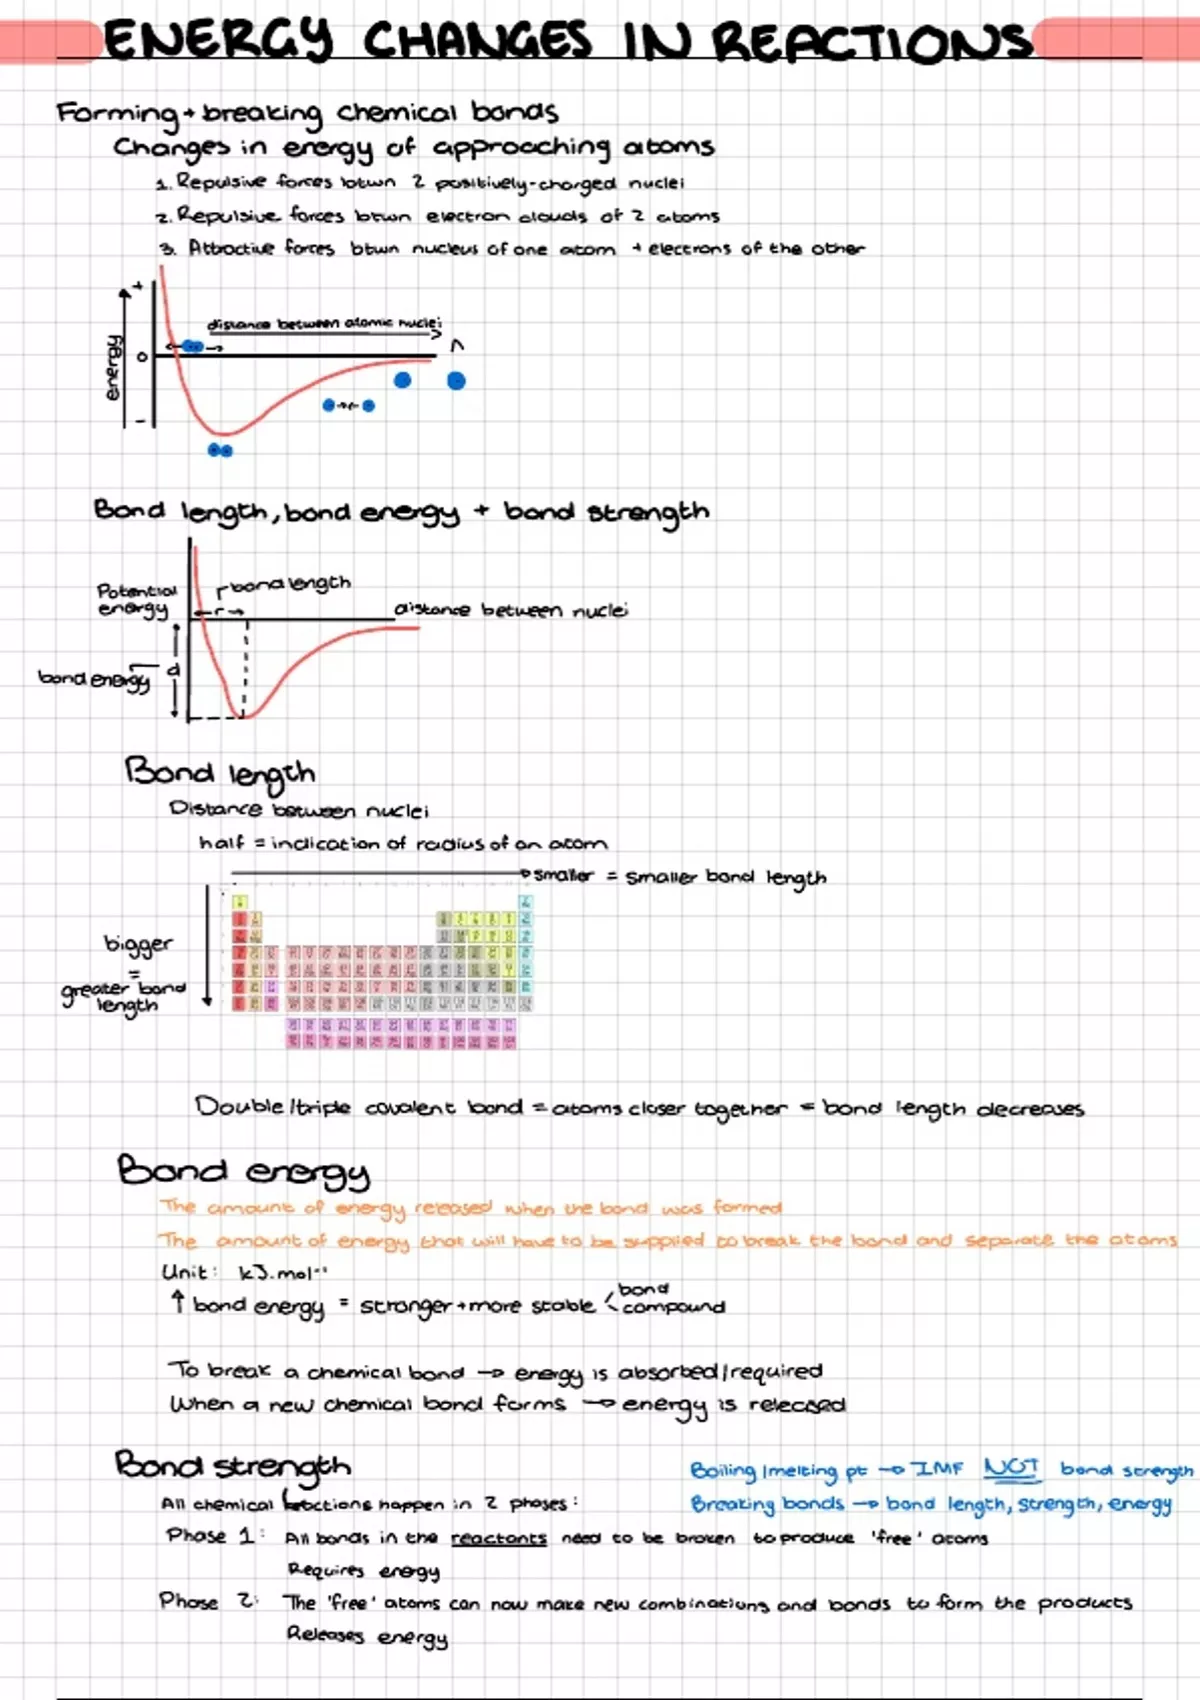 ENERGY CHANGES IN REACTIONS
Forming + breaking chemical bonds
Changes in energy of approaching atoms
1. Repulsive forces btwn 2 positively-charged nuclei
2. Repulsive forces btwn electron clouds of 2 atoms
3. Attractive forces btwn nucleus of one atom + electrons of the other
+
distance between atomic nuclei
energy
0
-
Bond length, bond energy + bond strength
Potential energy
r bond length
r
distance between nuclei
bond energy
d
Bond length
Distance between nuclei
half = indication of radius of an atom
smaller = smaller bond length
bigger
=
greater bond
length
Double/triple covalent bond = atoms closer together = bond length decreases
Bond energy
The amount of energy released when the bond was formed
The amount of energy that will have to be supplied to break the bond and separate the atoms
Unit: kJ.mol⁻¹
↑ bond energy = stronger + more stable < bond
compound
To break a chemical bond → energy is absorbed/required
When a new chemical bond forms → energy is released
Bond strength
Boiling/melting pt → IMF NOT bond strength
All chemical reactions happen in 2 phases:
Breaking bonds → bond length, strength, energy
Phase 1: All bonds in the reactants need to be broken to produce 'free' atoms
Requires energy
Phase 2: The 'free' atoms can now make new combinations and bonds to form the products
Releases energy